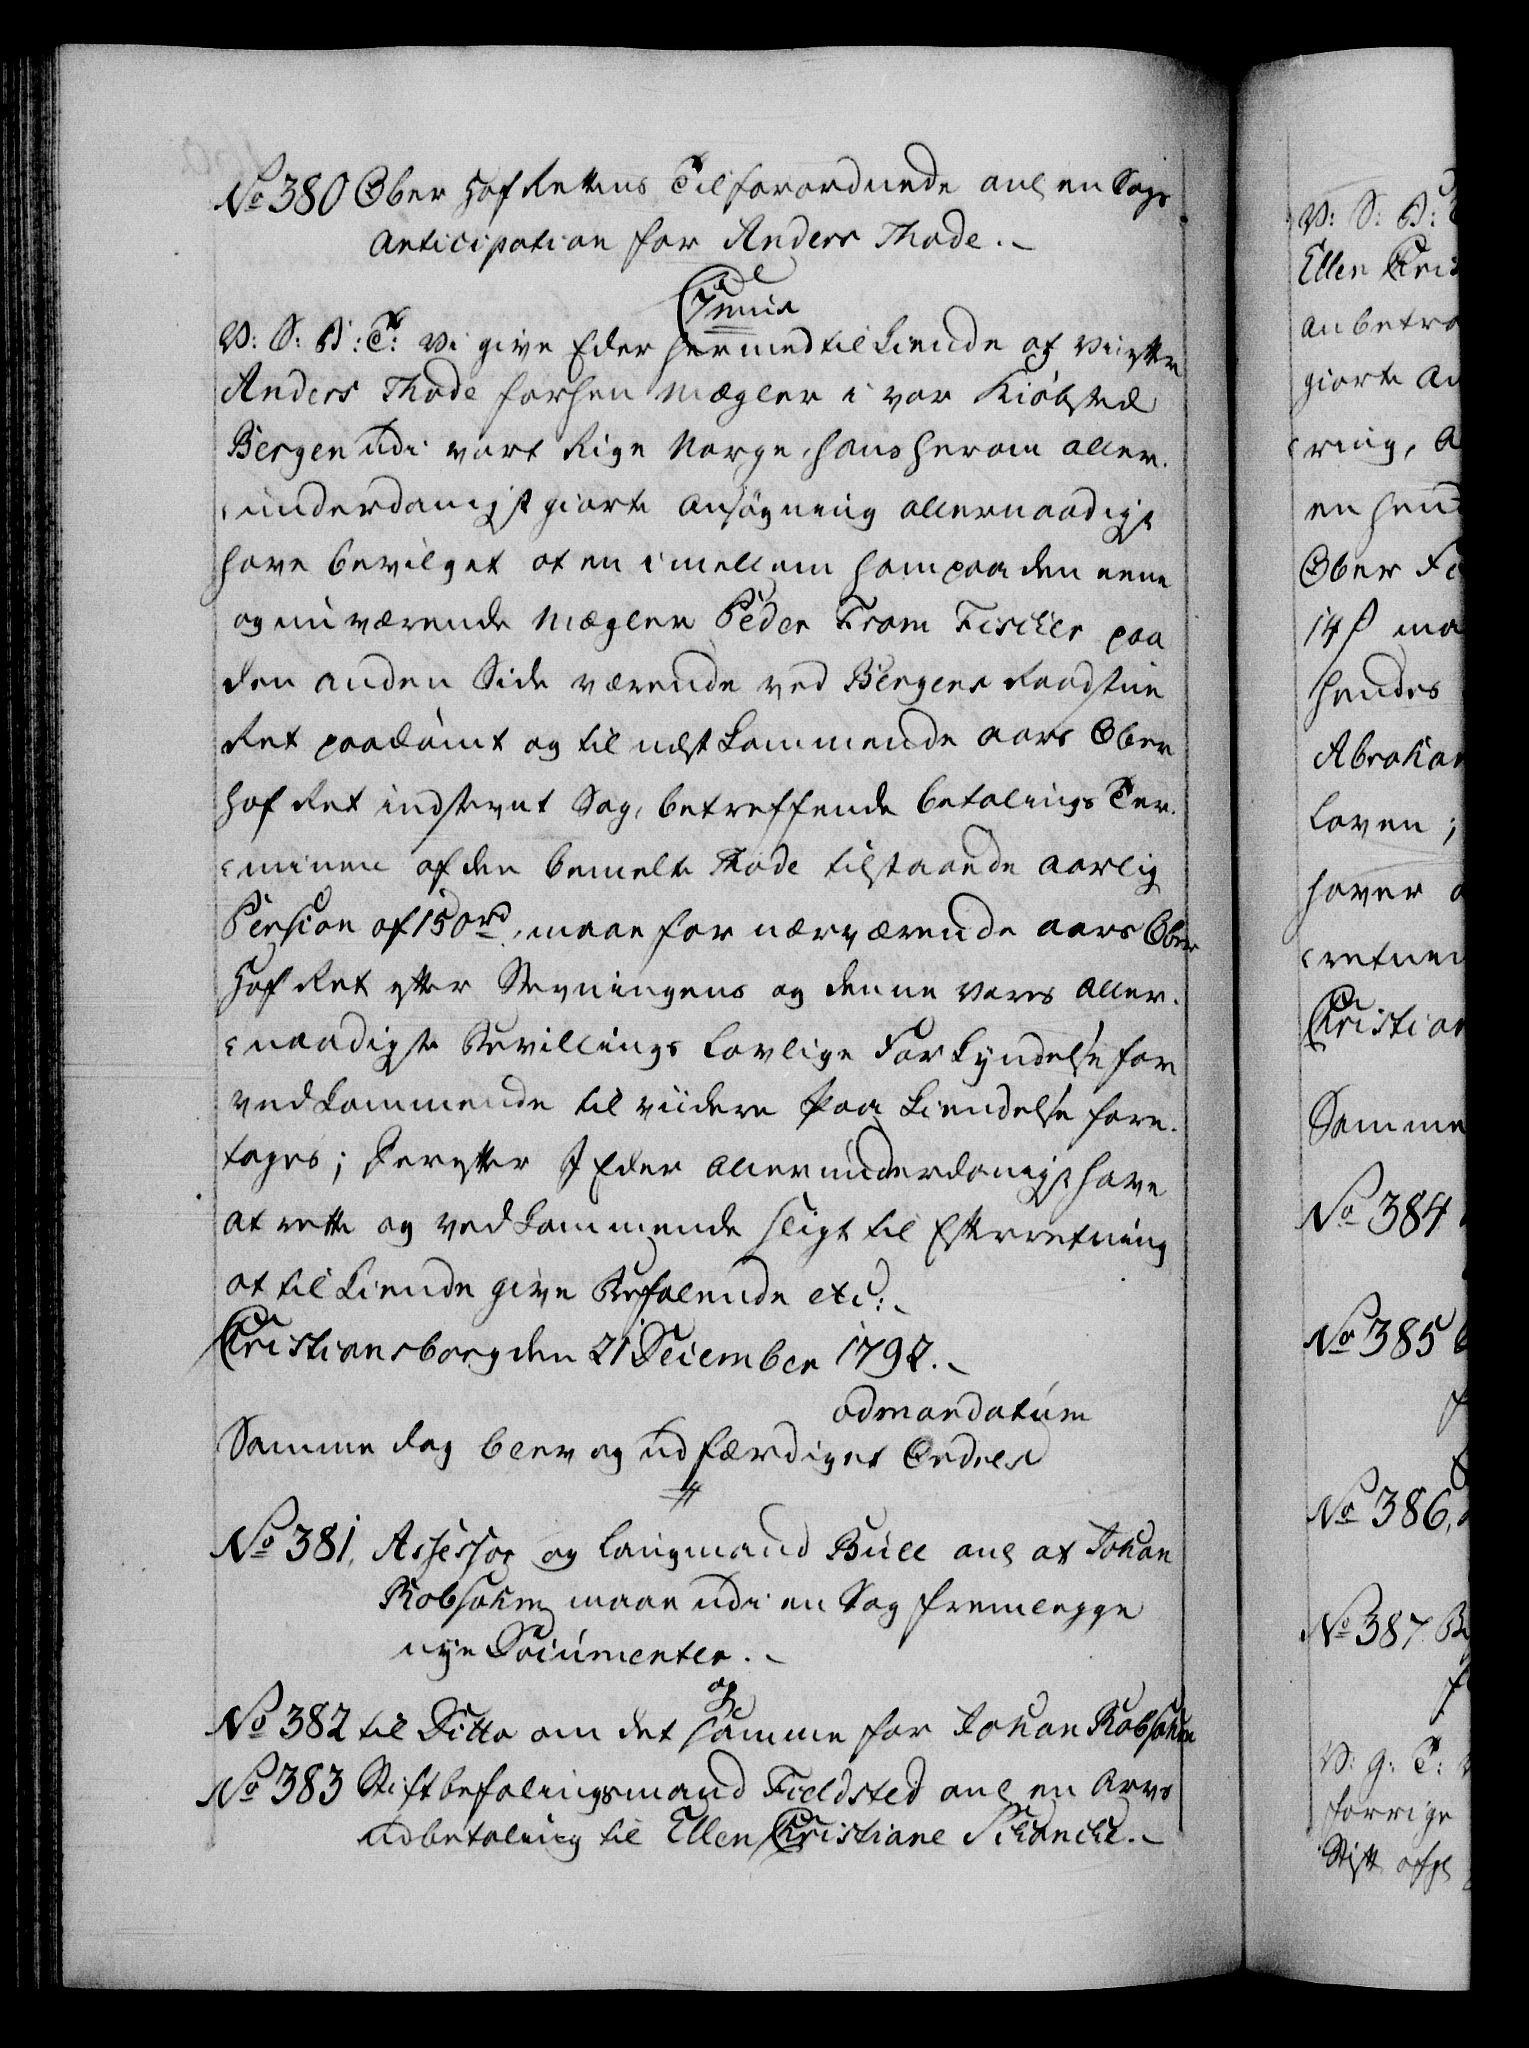 No 380 Ober Hof Rettens Tilforordnede anl en Sags
Anticipation for Anders Thode.
V: S: B: T: Vi give Eder hermed tilkiende at vi efter
Anders Thode forhen Mægler i vor Kiøbsted
Bergen udi vort Rige Norge, hans herom aller-
underdanigst giorte Ansøgning allernaadigst
have bevilget at en imellem ham paa den eene
og nu værende Mægler Peder From Fischer paa
den anden Side værende ved Bergens Raadstue
Ret paadømt og til næstkommende Aars Ober
Hof Ret indstevnt Sag, betreffende betalings Ter-
minen af den bemelte Thode tilstaaende aarlig
Pension af 150 rd, maae for nærværende Aars Ober
Hof Ret efter Stevningens og denne vores aller-
naadigste Bevillings lovlige Forkyndelse for
vedkommende til viidere Paakiendelse fore-
tages; Derefter I Eder allerunderdanigst have
at rette og vedkommende sligt til Efterretning
at tilkiende give Befalende etc:
Cristiansborg den 21 December 1792.
ad mandatum
Samme dag blev og udfærdiget Ordres
No 381. Assessor og Laugmand Bull anl at Johan
Robsahm maae udi en Sag fremlegge
nye Documenter.
No 382 til Ditto om det samme for Johan Robsahm
No 383 Stiftbefalingsmand Fieldsted anl en Arvs
udbetaling til Ellen Cristiane Schancke.
V: S: B:
Ellen Cris
anbetro
giorte An
ring, A
en hend
Ober Fo
14 ß ma
hendes
Abraham
Loven;
haver
retnen
Cristian
Samme
No 384
No 385
No 386,
No 387
V: G: T:
forrige
Stift